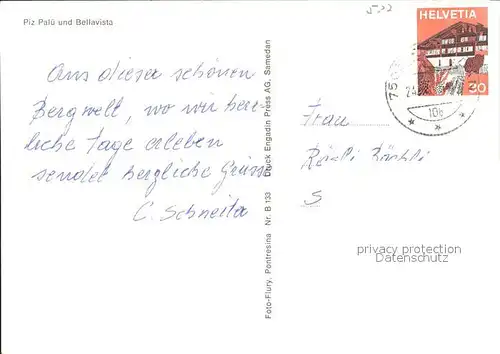 Piz Palü und Bellavista
522
HELVETIA
30
75
24
10
Aus dieser schönen
Bergwelt, wo wir herr-
liche Tage erleben
sendet herzliche Grüsse
C. Schneiter
Foto-Flury, Pontresina Nr. B 133 Druck Engadin Press AG, Samedan
Frau
privacy protection
Datenschutz